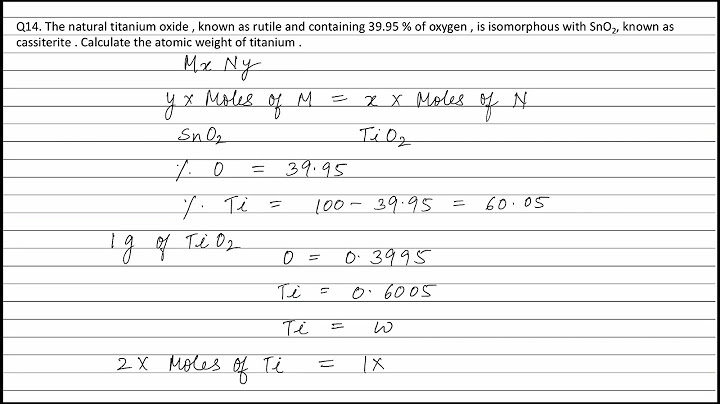 Q14. The natural titanium oxide , known as rutile and containing 39.95 % of oxygen , is isomorphous with SnO₂, known as
cassiterite . Calculate the atomic weight of titanium .
Mx Ny
y x Moles of M = x x Moles of N
SnO₂ TiO₂
% O = 39.95
% Ti = 100 - 39.95 = 60.05
1g of TiO₂
O = 0.3995
Ti = 0.6005
Ti = w
2 x Moles of Ti = 1x